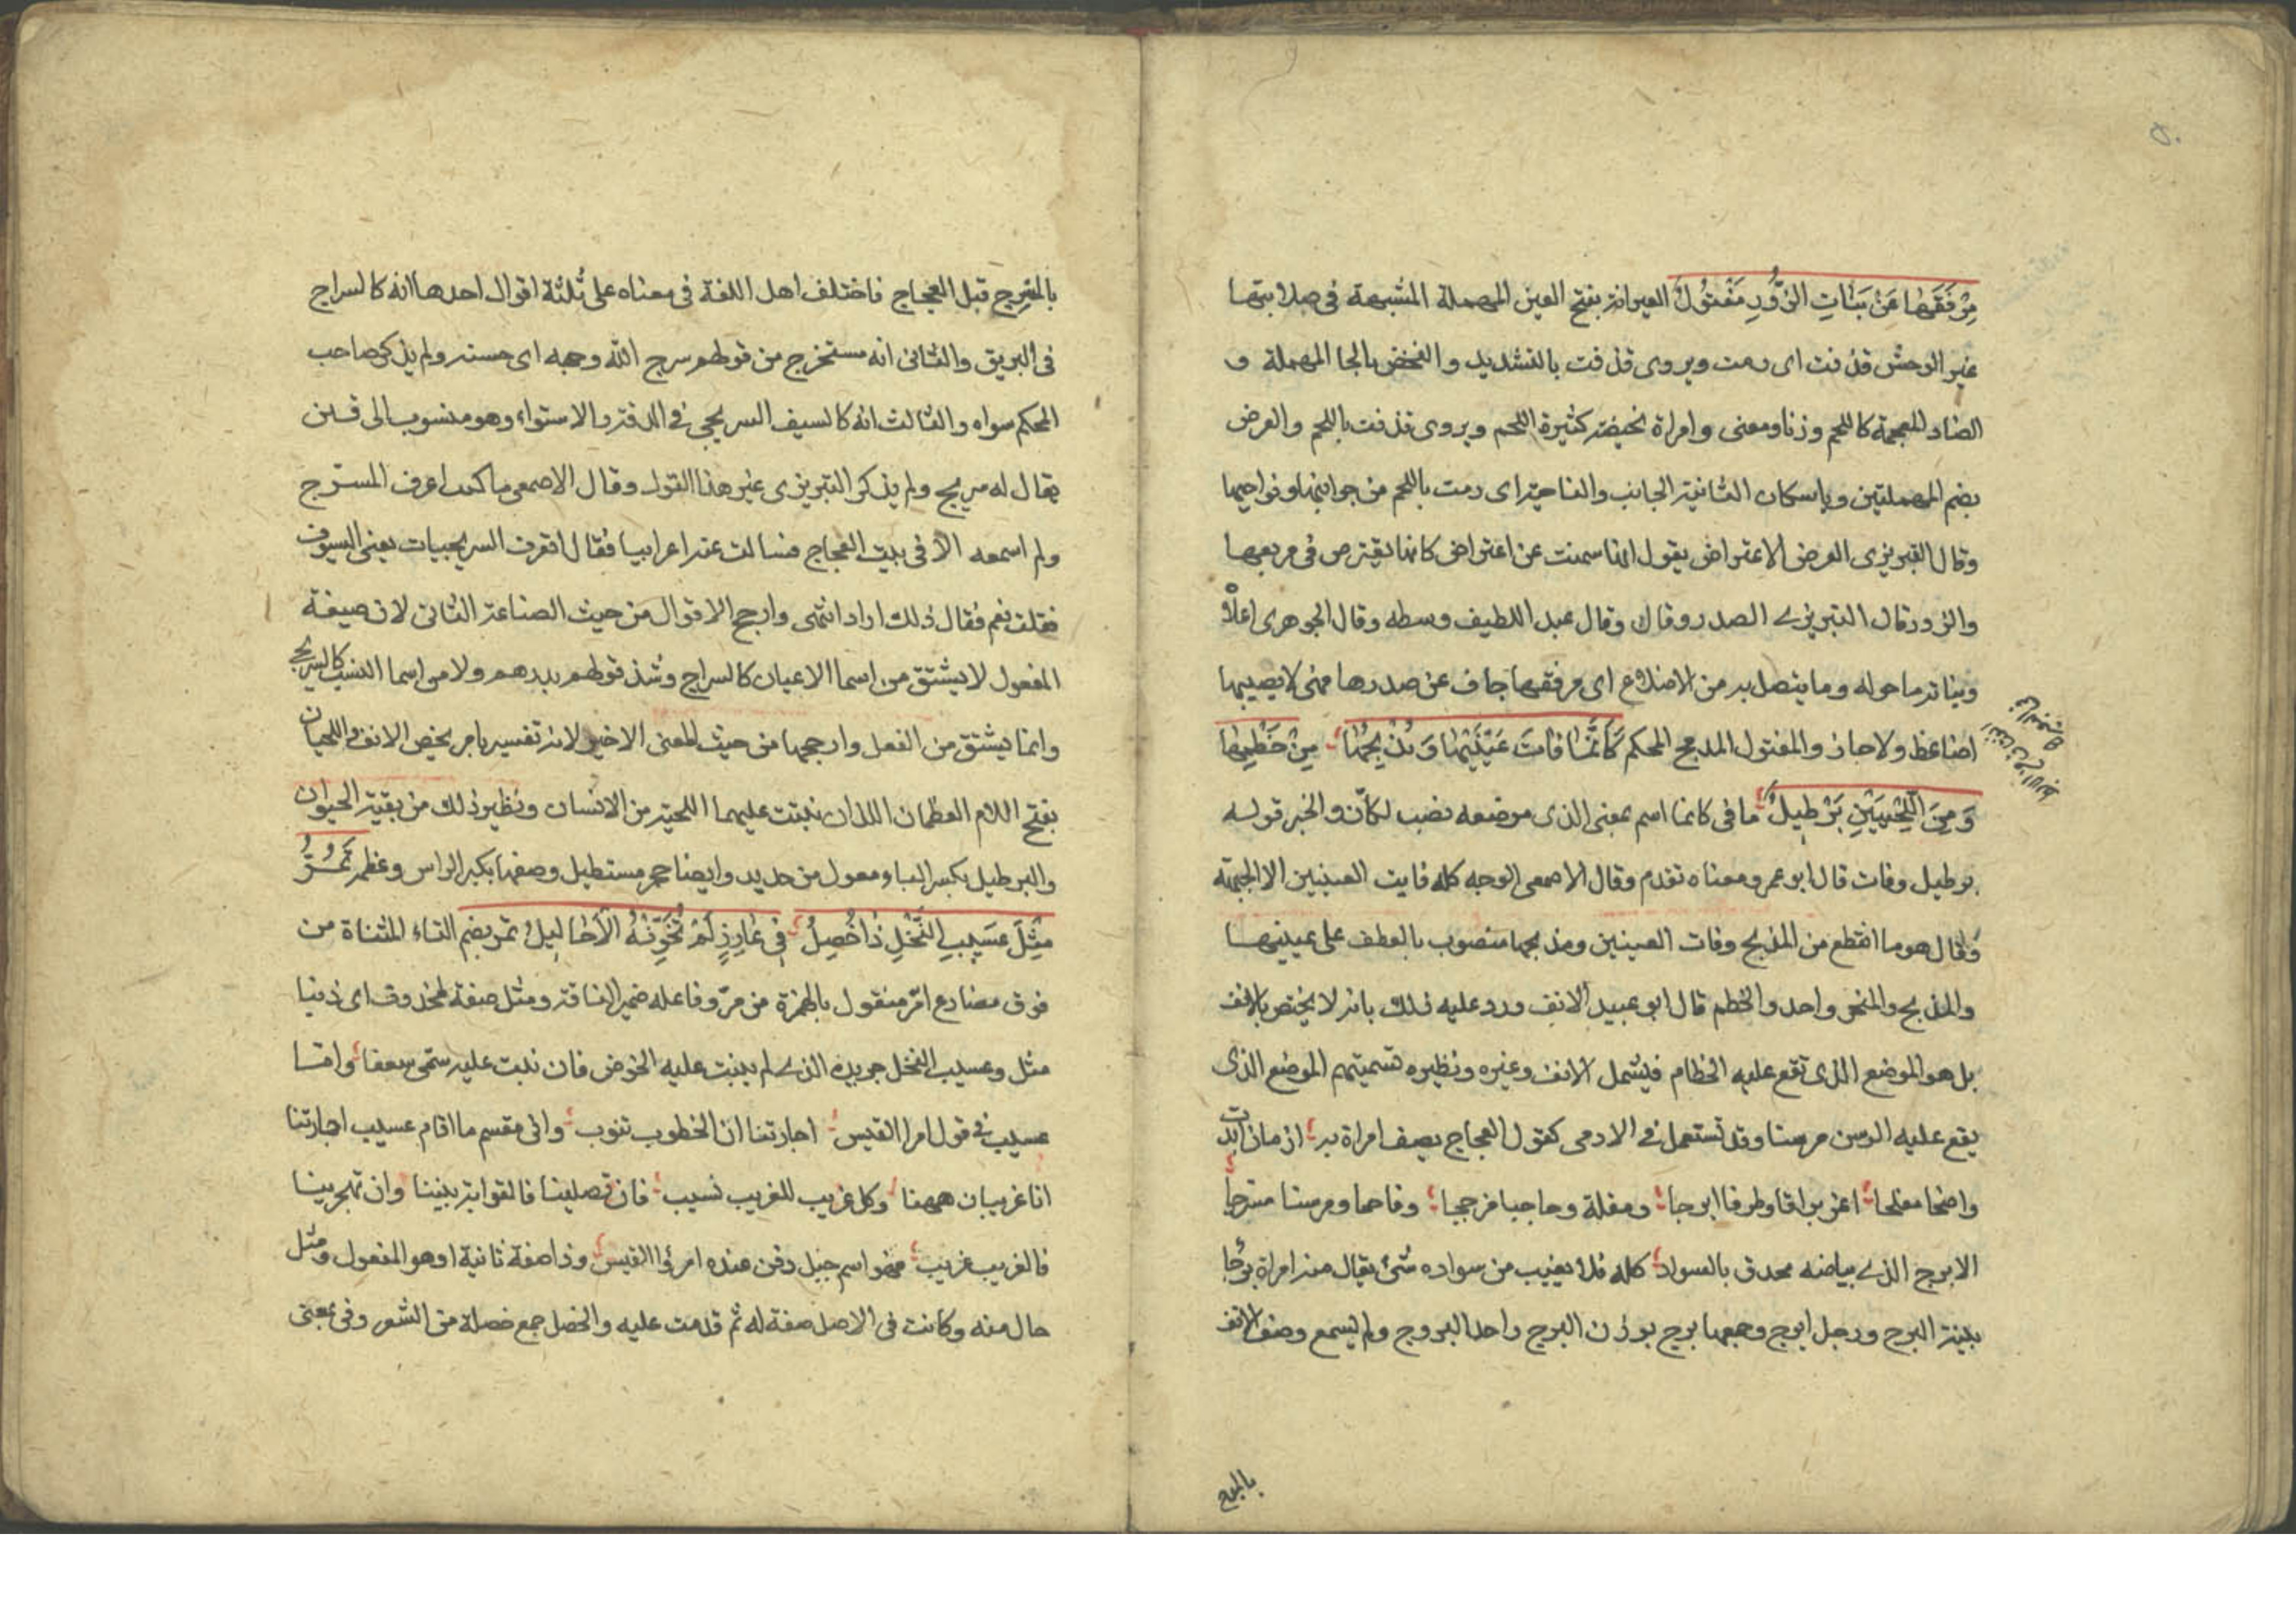 مِرْفَقُهَا عَنْ بَنَاتِ الزَّوْرِ مَفْتُولُ العيرانة بفتح العين المهملة المشبهة فى صلابتها
عير الوحش قذفت اى رمت ويروى قذفت بالتشديد والنحض بالحا المهملة و
الضاد المعجمة كاللحم وزنا ومعنى وامراة نحيضة كثيرة اللحم ويروى قذفت باللحم والعرض
بضم المهملتين وباسكان الثانية الجانب والناحية اى رمت باللحم من جوانبها ونواحيها
وقال التبريزى العرض الاعتراض يقول انها سمنت عن اعتراض كانها تعترض فى مربعها
والزور قال التبريزى الصدر وقال عبد اللطيف وسطه وقال الجوهرى اعلاه
وبناته ما حوله وما يتصل به من الاضلاع اى مرفقها جاف عن صدرها فهى لا يصيبها
ضاغط ولا حاز والمفتول المدمج المحكم كَأَنَّمَا فَاتَ عَيْنَيْهَا وَمَذْبَحَهَا مِنْ خَطْمِهَا
وَمِنَ اللَّحْيَيْنِ بَرْطِيلُ ما فى كانما اسم بمعنى الذى موضعه نصب لكانّ والخبر قوله
برطيل وفات قال ابو عمرو معناه تقدم وقال الاصمعى الوجه كله فايت العينين الا الجبهة
وقال هو ما انقطع من المذبح وفات العينين ومذبحها منصوب بالعطف على عينيها
والمذبح والمنحر واحد والخطم قال ابو عبيد الانف ورد عليه ذلك بانه لا يختص بالانف
بل هو الموضع الذى تقع عليه الخظام فيشمل الانف وغيره ونظيره تسميتهم الموضع الذى
يقع عليه الرسن مرسنا وقد تستعمل فى الادمى كقول العجاج يصف امراة به ازمان ابدت
واضحا مفلجا اغر براقا وطرفا ابرجا ومقلة وحاجبا مزججا وفاحما ومرسنا مسرجا
الابرج الذى بياضه محدق بالسواد كله فلا يغيب من سواده شئ يقال منه امراة برجا
بينة البرج ورجل ابرج وجمعها برج بوزن البرج واحد البروج ولم يسمع وصف الانف
بالمسرج قبل العجاج فاختلف اهل اللغة فى معناه على ثلثة اقوال احدها انه كالسراج
فى البريق والثانى انه مستخرج من قولهم سرج الله وجهه اى حسنه ولم يذكر صاحب
المحكم سواه والثالث انه كالسيف السريجى فى الدقة والاستواء وهو منسوب الى قين
يقال له سريج ولم يذكر التبريزى غير هذا القول وقال الاصمعى ما كنت اعرف المسرج
ولم اسمعه الا فى بيت العجاج فسالت عنه اعرابيا فقال اتعرف السريجيات يعنى السيوف
فقلت نعم فقال ذلك اراد انتهى وارجح الاقوال من حيث الصناعة الثانى لان صيغة
المفعول لا يشتق من اسما الاعيان كالسراج وشذ قولهم مدرهم ولا من اسما النسب كالسريجى
وانما يشتق من الفعل وارجحها من حيث المعنى الاخير لانه تفسير بامر يخص الانف واللحيان
بفتح اللام العظمان اللذان نبتت عليهما اللحية من الانسان ونظير ذلك من بقية الحيوان
والبرطيل بكسر الباء معول من حديد وايضا حجر مستطيل وصفها بكبر الراس وعظم تُمِرُّ
مِثْلَ عَسِيبِ النَّخْلِ ذَا خُصَلٍ فِى غَارِزٍ لَمْ تُخَوِّنْهُ الْأَحَالِيلُ تمر بضم التاء المثناة من
فوق مضارع امرّ منقول بالهمزة من مرّ وفاعله ضمير الناقة ومثل صفة لمحذوف اى ذنبا
مثل وعسيب النخل جريده الذى لم ينبت عليه الخوض فان نبت عليه سمّى سعفا وامّا
عسيب فى قول امرا القيس اجارتنا ان الخطوب تنوب وانى مقيم ما اقام عسيب اجارتنا
انا غريبان ههنا وكل غريب للغريب نسيب فان تصلينا فالقرابة بيننا وان تهجرينا
فالغريب غريب فهو اسم جبل دفن عنده امرؤا القيس وذا صفة ثانية او هو المفعول ومثل
حال منه وكانت فى الاصل صفة له ثم قدمت عليه والخصل جمع خصلة من الشعر وفى بمعنى